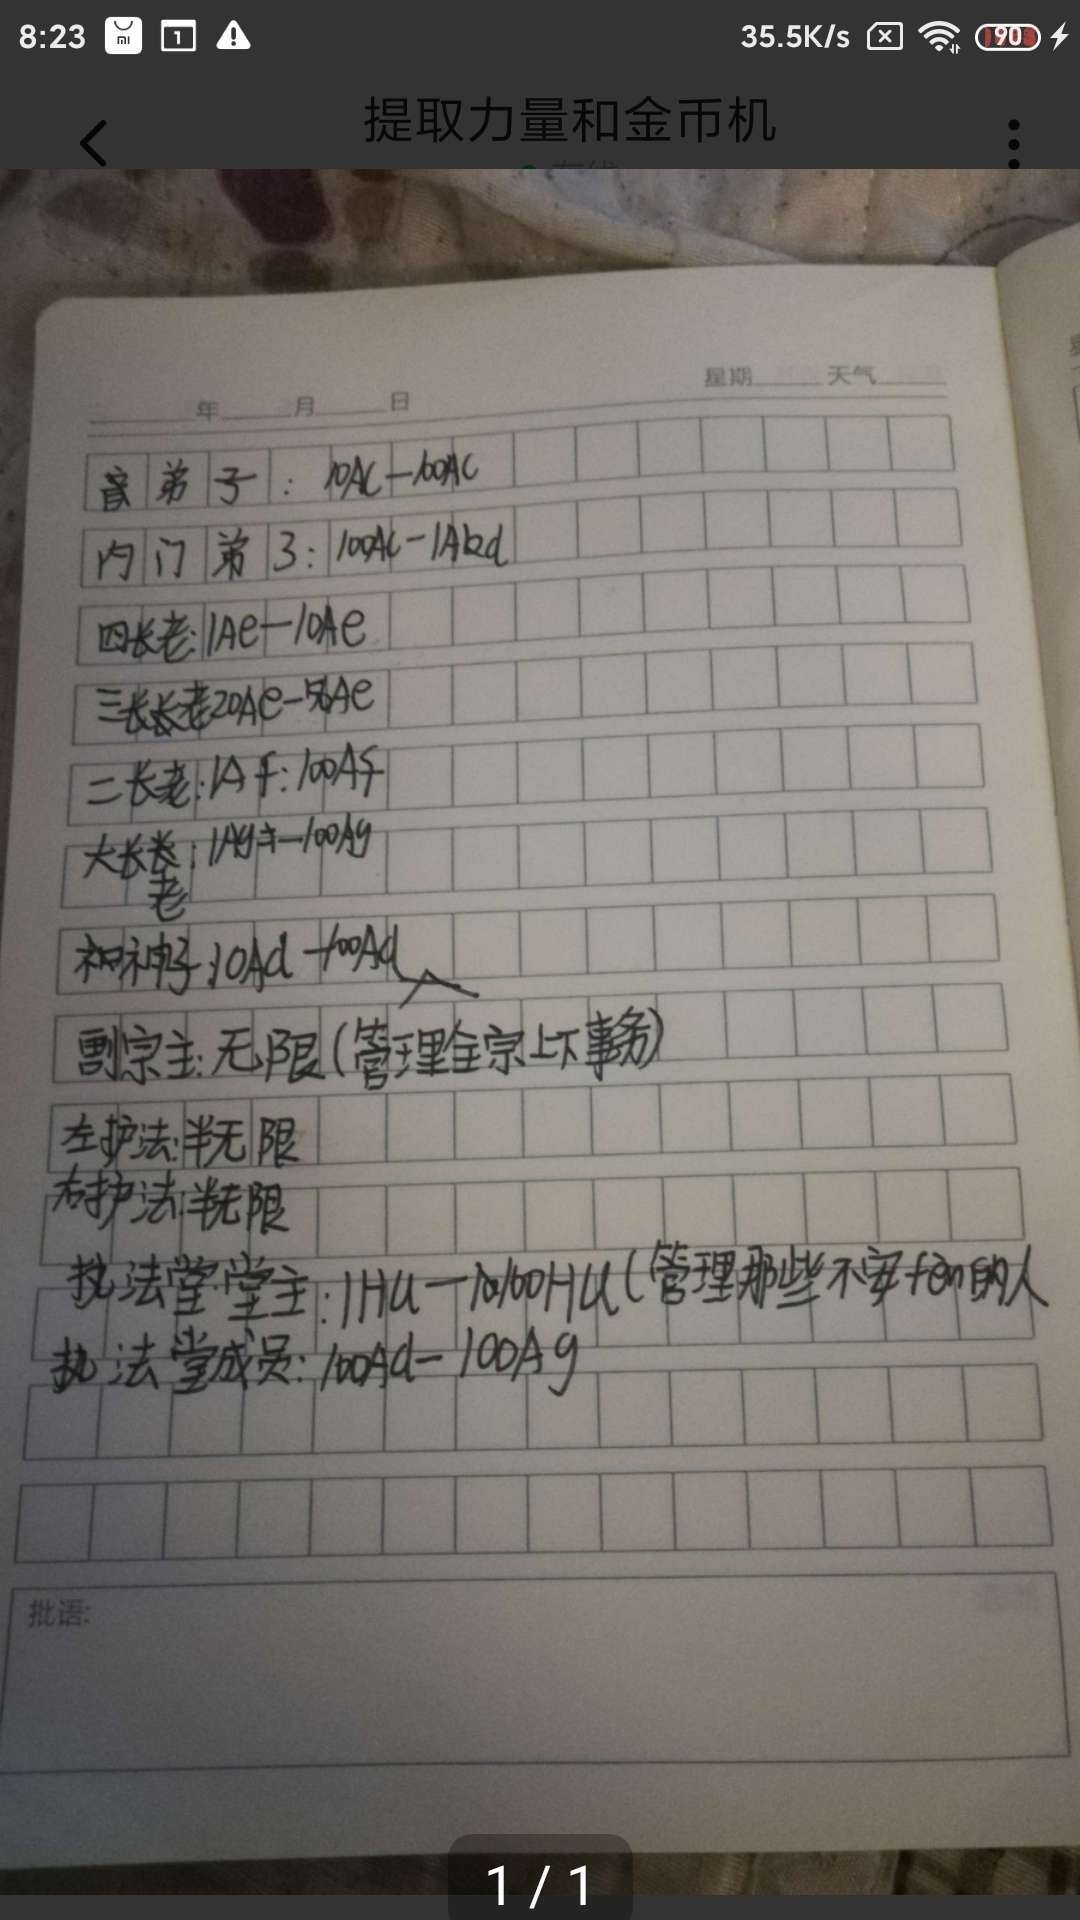 8:23
35.5K/s
90
提取力量和金币机
年 月 日
星期 天气
弟子: 10AC-100AC
内门弟子: 100AC-1Abd
四长老:1Ae-10Ae
三长老20Ae-50Ae
二长老:1Af:100Af
大长老:1Ag-100Ag
神子:10Ad-100Ad
副宗主:无限(管理全宗上下事务)
左护法:半无限
右护法:半无限
执法堂堂主:1HU-100HU(管理那些不安fen的人
执法堂成员:100Ad-100Ag
批语:
1 / 1